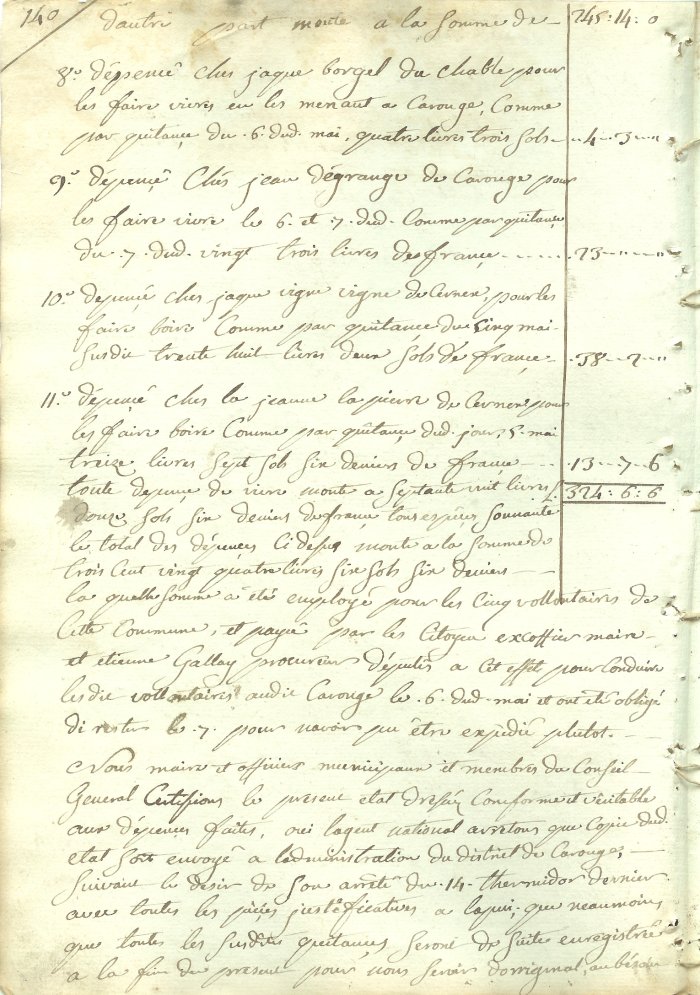 140
dautre part monte a la somme de 245 : 14 : 0
8.° dépencé chés jaque borgel du Chable pour
les faire vivres en les menant a Carouge, Comme
par quitançe du .6. dud. mai, quatre livres trois sols - 4 - 3 - "
9.° dépencé Chés jean dégrange de Carouge pour
les faire vivre le 6. et .7. dud. Comme par quitançe
du .7. dud. vingt trois livres de françe - 23 - " - "
10.° depencé ches jaque vigne de Cernex, pour les
faire boire Comme par quitance du Cinq mai
susdit trente huit livres deux sols de françe - 38 - 2 - "
11.° dépencé ches la jeanne la pierre de Cernex pour
les faire boire Comme par quitance dud. jour, 5. mai
treize livres sept sols six deniers de françe - 13 - 7 - 6
toute depençe de vivre monte a septante huit livres L. 324 : 6 : 6
douze sols six deniers de france tous espèçes sonnante
le total des dépences Ci depus monte a la somme de
trois Cent vingt quatre livres six sols six deniers
la quelle somme a été employé pour les Cinq vollontaires de
Cette Commune, et payée par les Citoyen excoffier maire
et etienne Gallay procureur députés a Cet effet pour Conduire
lesdit vollontaires audit Carouge le .6. dud. mai et ont été obligé
di rester le .7. pour navoir pu être expédié plutot.
Nous maire et officiers municipaux et membres du Conseil
General Certifions le present etat dressé Conforme et véritable
aux dépences faites, oui lagent national arretons que Copie dud.
etat soit envoyé a ladministration du district de Carouge,
suivant le désir de son arrêté du .14. thermidor dernier
avec toutes les pièces justificatives a lapui; que neaumoins
que toutes les susdites quitances seront de suite enregistrée
a la fin du present pour nous servir dorriginal, au bésoin